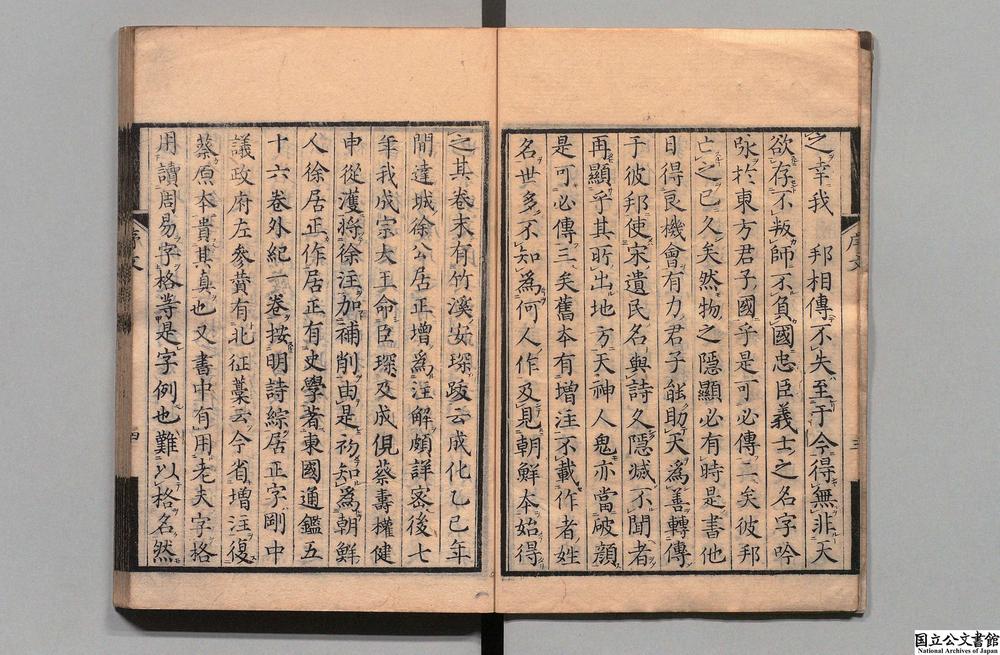 之幸我　邦相傳不失至于今得無非天
欲存不叛師不負國忠臣義士之名字吟
咏於東方君子國乎是可必傳二矣彼邦
亡之已久矣然物之隱顯必有時是書他
日得良機會有力君子能助天為善轉傳
于彼邦使宋遺民名與詩久隱滅不聞者
再顯乎其所出地方天神人鬼亦當破顏
是可必傳三矣舊本有增注不載作者姓
名世多不知為何人作及見朝鮮本始得
三
之其卷末有竹溪安琛跋云成化乙巳年
間達城徐公居正增為注解頗詳密後七
年我成宗大王命臣琛及成俔蔡壽權健
申從濩將徐注加補削由是初知為朝鮮
人徐居正作居正有史學著東國通鑑五
十六卷外紀一卷按明詩綜居正字剛中
議政府左參賛有北征藁云今省增注復
蔡原本貴其真也又書中有用老夫字格
用讀周易字格等是字例也難以格名然
序文
四
国立公文書館
National Archives of Japan